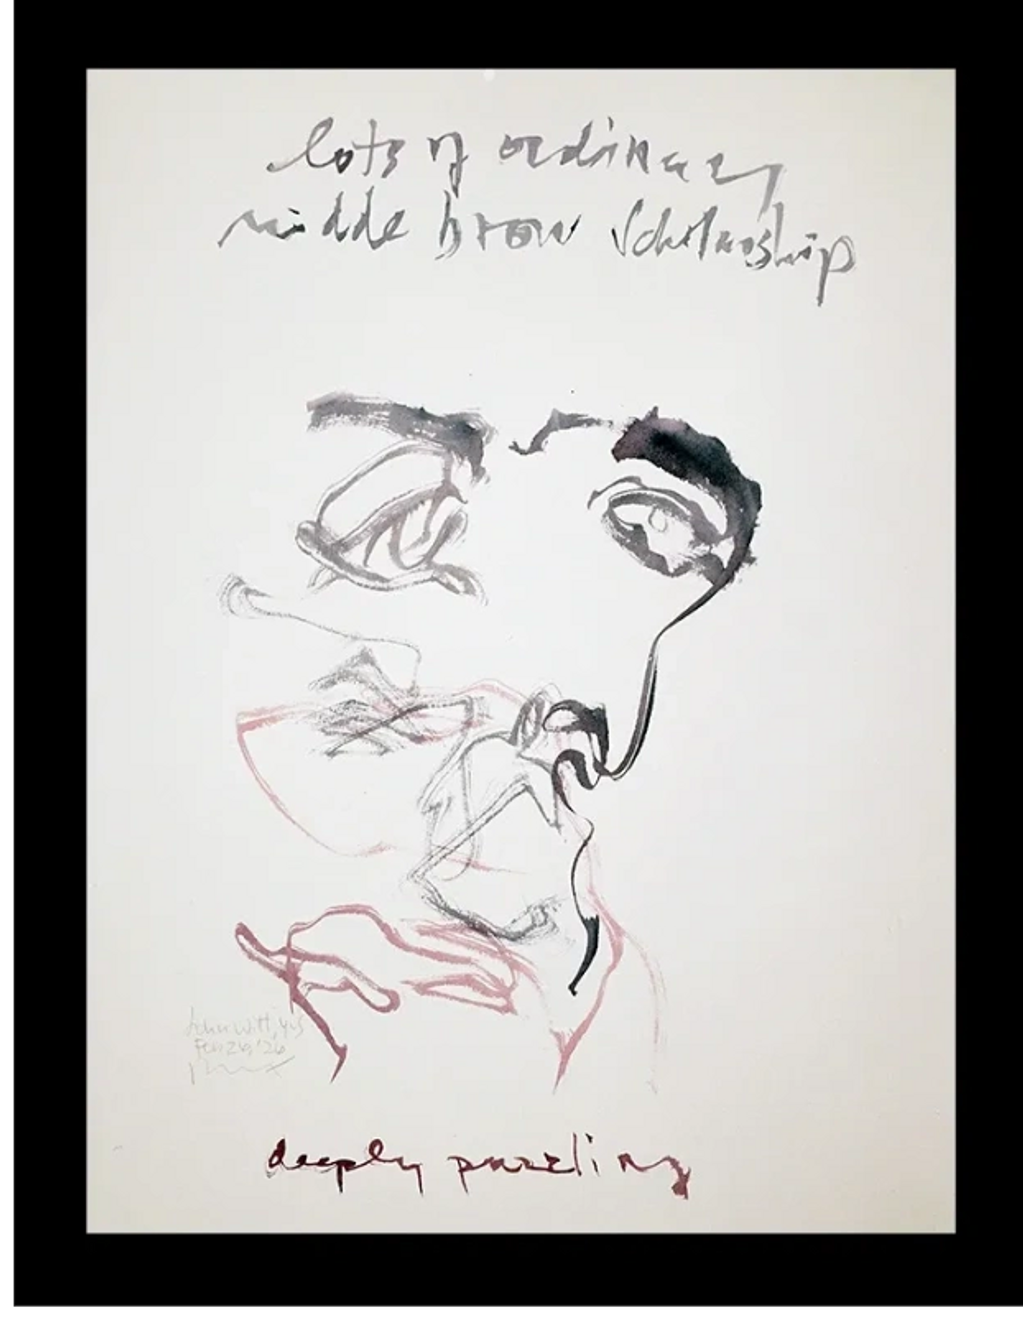 lots of ordinary
midde brow scholarship
John Witt, YLS
Feb 26, '26
deeply puzzling